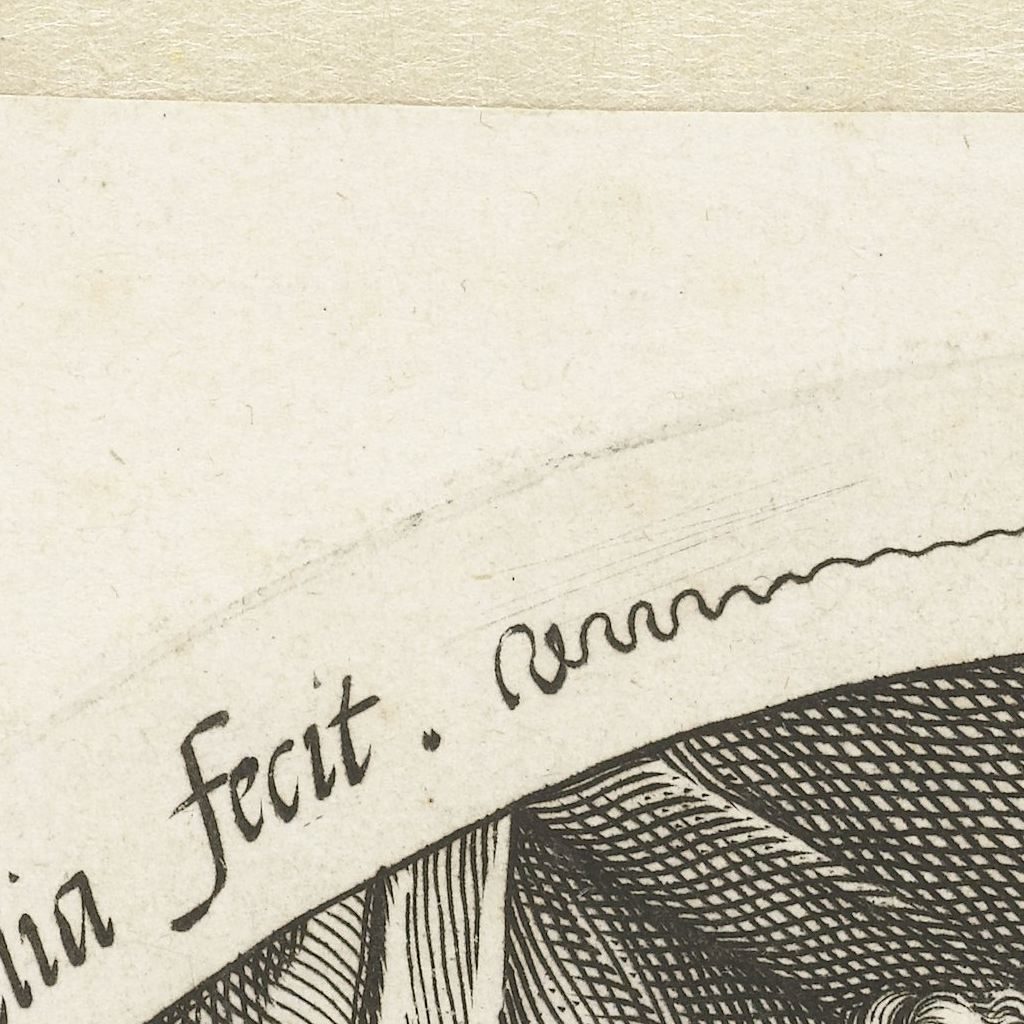 lia fecit.